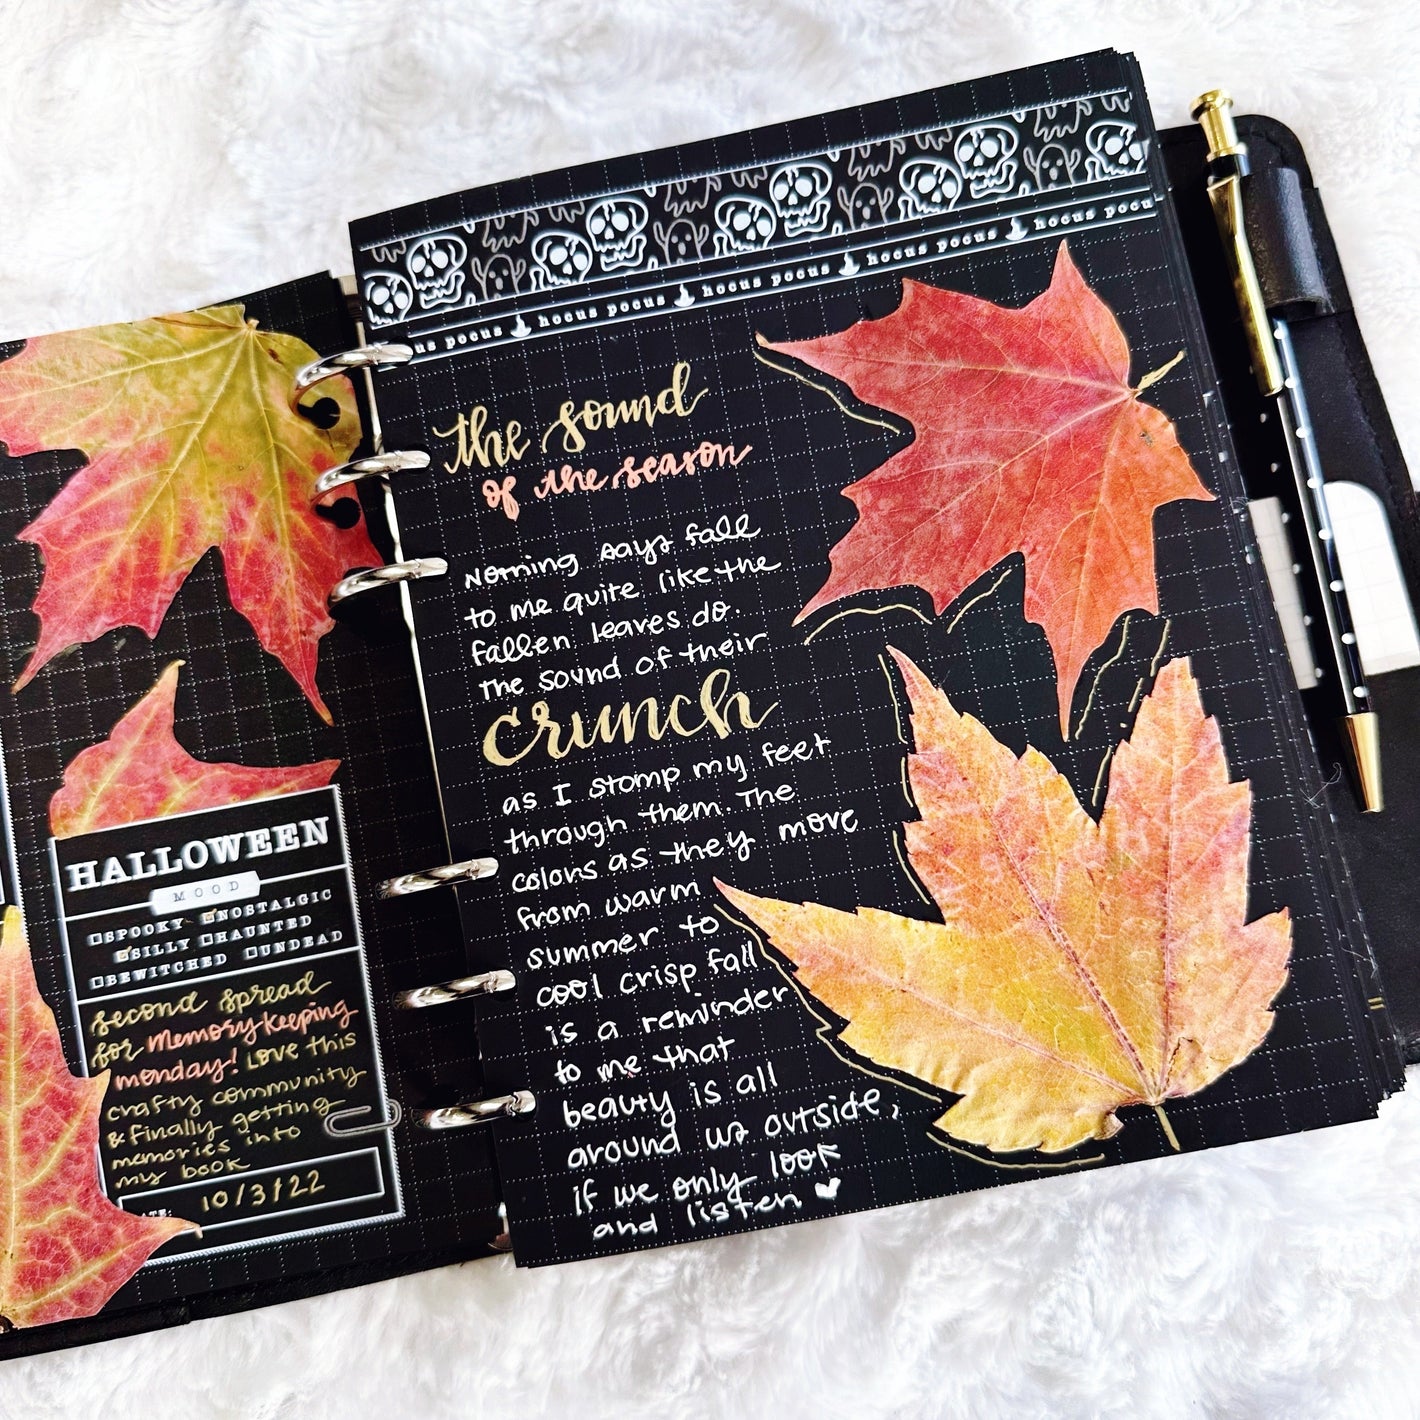 HALLOWEEN
MOOD
SPOOKY NOSTALGIC
SILLY HAUNTED
BEWITCHED UNDEAD
second spread
for memory keeping
monday! Love this
crafty community
& finally getting
memories into
my book
10/3/22
us pocus hocus pocus hocus pocus hocus pocus hocus pocu
the sound
of the season
Nothing says fall
to me quite like the
fallen leaves do.
The sound of their
crunch
as I stomp my feet
through them. The
colors as they move
from warm
summer to
cool crisp fall
is a reminder
to me that
beauty is all
around us outside,
if we only look
and listen